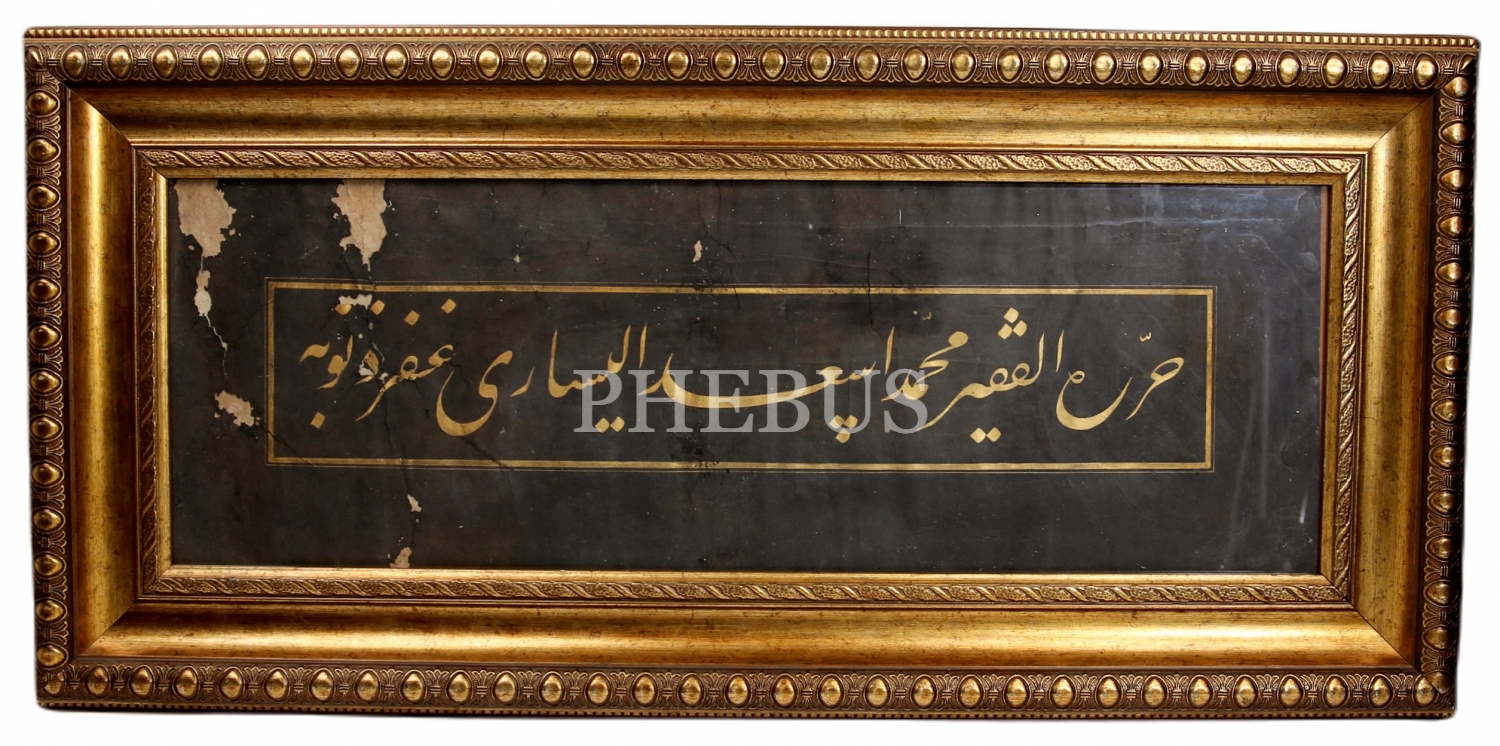 حرّره الفقير محمّد اسعد اليسارى غفر ذنوبه
PHEBUS